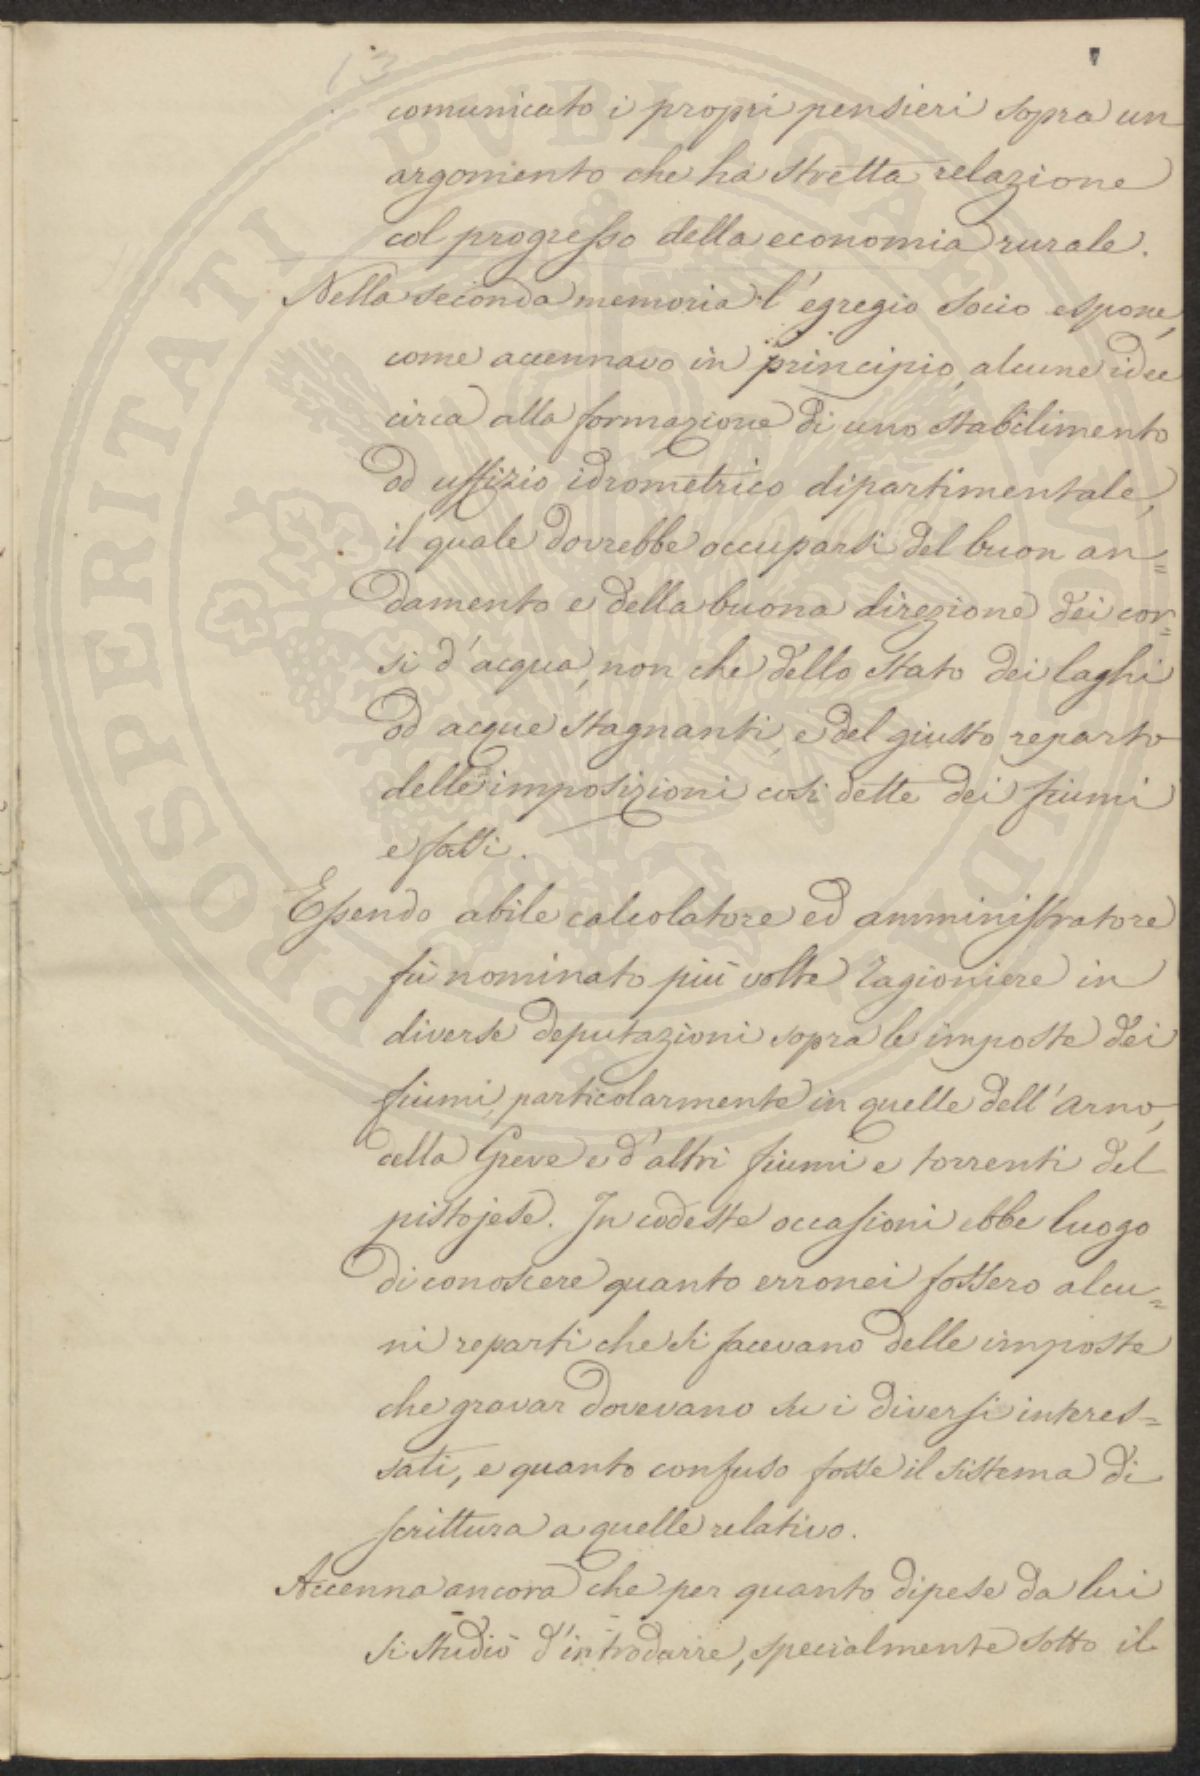 13
comunicato i propri pensieri sopra un
argomento che ha stretta relazione
col progresso della economia rurale.
Nella seconda memoria l'egregio socio espone,
come accennavo in principio, alcune idee
circa alla formazione di uno stabilimento
od uffizio idrometrico dipartimentale,
il quale dovrebbe occuparsi del buon an=
damento e della buona direzione dei cor=
si d'acqua, non che dello stato dei laghi
od acque stagnanti, e del giusto reparto
delle imposizioni così dette dei fiumi
e fossi.
Essendo abile calcolatore ed amministratore
fù nominato più volte ragioniere in
diverse deputazioni sopra le imposte dei
fiumi, particolarmente in quelle dell'Arno,
della Greve e d'altri fiumi e torrenti del
pistojese. In codeste occasioni ebbe luogo
di conoscere quanto erronei fossero alcu=
ni reparti che si facevano delle imposte
che gravar dovevano su i diversi interes=
sati, e quanto confuso fosse il sistema di
scrittura a quelle relativo.
Accenna ancora che per quanto dipese da lui
si studiò d'introdurre, specialmente sotto il
PROSPERITATI PUBLICAE AUGENDAE